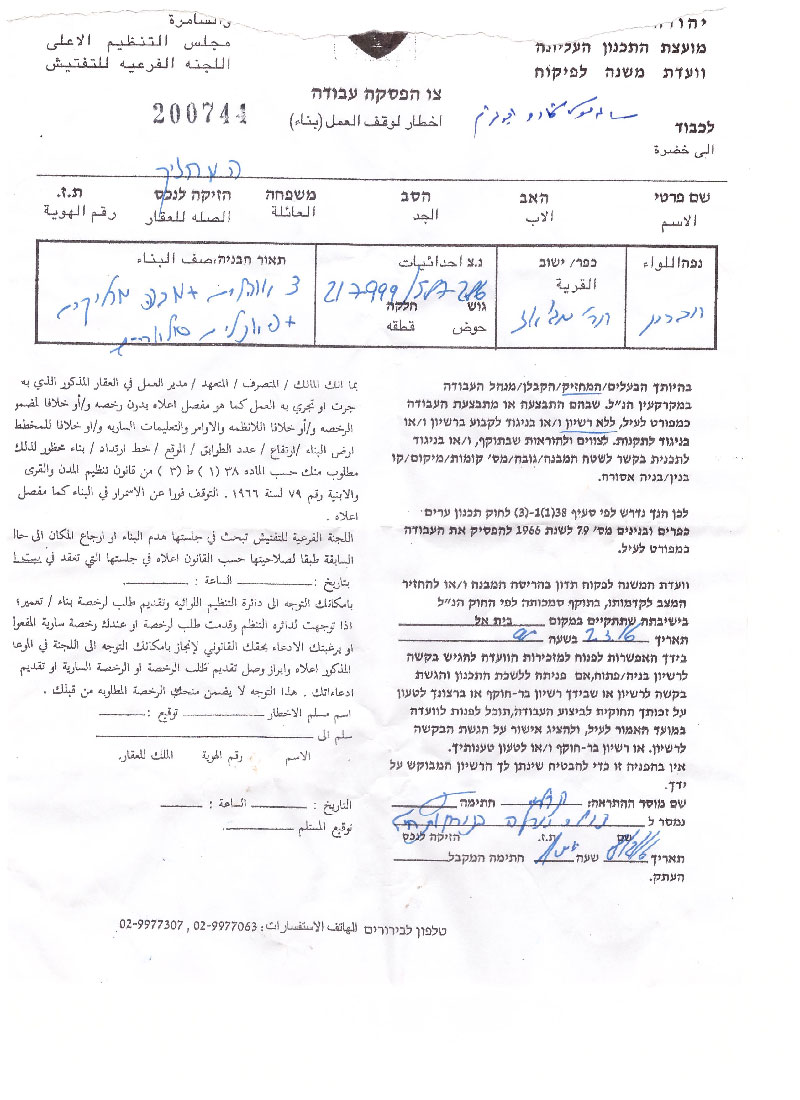 יהודה
מועצת התכנון העליונה
וועדת משנה לפיקוח
والسامرة
مجلس التنظيم الاعلى
اللجنه الفرعيه للتفتيش
צו הפסקה עבודה
اخطار لوقف العمل (بناء)
200744
לכבוד
الى حضرة
המחזיק
שם פרטי האב הסב משפחה הזיקה לנכס ת.ז.
الاسم الاب الجد العائلة الصله للعقار رقم الهوية
נפה/اللواء כפר/ישוב נ.צ احداثيات תאור הבניה/صف البناء
القرية
חברון 217999/587286
גוש חלקה
حوض قطعه
3
בהיותך הבעלים/המחזיק/הקבלן/מנהל העבודה
במקרקעין הנ"ל. שבהם התבצעה או מתבצעת העבודה
כמפורט לעיל, ללא רשיון ו/או בניגוד לקבוע ברשיון ו/או
בניגוד לתקנות. לצווים ולהוראות שבתוקף, ו/או בניגוד
לתכנית בקשר לשטח המבנה/גובה/מס' קומות/מיקום/קו
בנין/בניה אסורה.
לכן הנך נדרש לפי סעיף 38(1)-(3) לחוק תכנון ערים
כפרים ובנינים מס' 79 לשנת 1966 להפסיק את העבודה
כמפורט לעיל.
וועדת המשנה לפקוח תדון בהריסת המבנה ו/או להחזיר
המצב לקדמותו, בתוקף סמכותה לפי החוק הנ"ל
בישיבתה שתתקיים במקום בית אל
תאריך בשעה
בידך האפשרות לפנות למזכירות הוועדה להגיש בקשה
לרשיון בניה/פתוח, אם פניתה ללשכת התכנון והגשת
בקשה לרשיון או שבידך רשיון בר-תוקף או ברצונך לטעון
על זכותך החוקית לביצוע העבודה, תוכל לפנות לוועדה
במועד האמור לעיל, ולהציג אישור על הגשת הבקשה
לרשיון. או רשיון בר-תוקף ו/או לטעון טענותיך.
אין בהפניה זו כדי להבטיח שינתן לך הרשיון המבוקש על
ידך.
שם מוסר ההתראה: חתימה
נמסר ל
שם ת.ז. הזיקה לנכס
תאריך שעה חתימה המקבל
העתק.
بما انك المالك / المتصرف / المتعهد / مدير العمل في العقار المذكور الذي به
جرت او تجري به العمل كما هو مفصل اعلاه بدون رخصه و/أو خلافا لمضمو
الرخصه و/أو خلافا للانظمه والاوامر والتعليمات الساريه و/او خلافا للمخطط
ارض البناء /ارتفاع / عدد الطوابق / الموقع / خط ارتداد / بناء محظور لذلك
مطلوب منك حسب الماده ٣٨ (١) ط (٣) من قانون تنظيم المدن والقرى
والابنية رقم ٧٩ لسنة ١٩٦٦. التوقف فورا عن الاستمرار في البناء كما مفصل
اعلاه.
اللجنة الفرعية للتفتيش تبحث في جلستها هدم البناء او ارجاع المكان الى حالا
السابقة طبقا لصلاحيتها حسب القانون اعلاه في جلستها التي تعقد في بيت ا
بتاريخ : الساعة :
بامكانك التوجه الى دائرة التنظيم اللوائيه وتقديم طلب لرخصة بناء / تعمير؛
اذا توجهت لدائره التنظم وقدمت طلب لرخصة او عندك رخصة سارية المفعول
او برغبتك الادعاء بحقك القانوني لإنجاز بامكانك التوجه الى اللجنة في الموعا
المذكور اعلاه وابراز وصل تقديم طلب الرخصة او الرخصة السارية او تقديم
ادعاءاتك . هذا التوجه لا يضمن منحك الرخصة المطلوبه من قبلك .
اسم مسلم الاخطار توقيع :
سلم الى
الاسم رقم الهوية الملك للعقار.
التاريخ : الساعة :
توقيع المستلم
טלפון לבירורים للهاتف الاستفسارات: 02-9977063 , 02-9977307